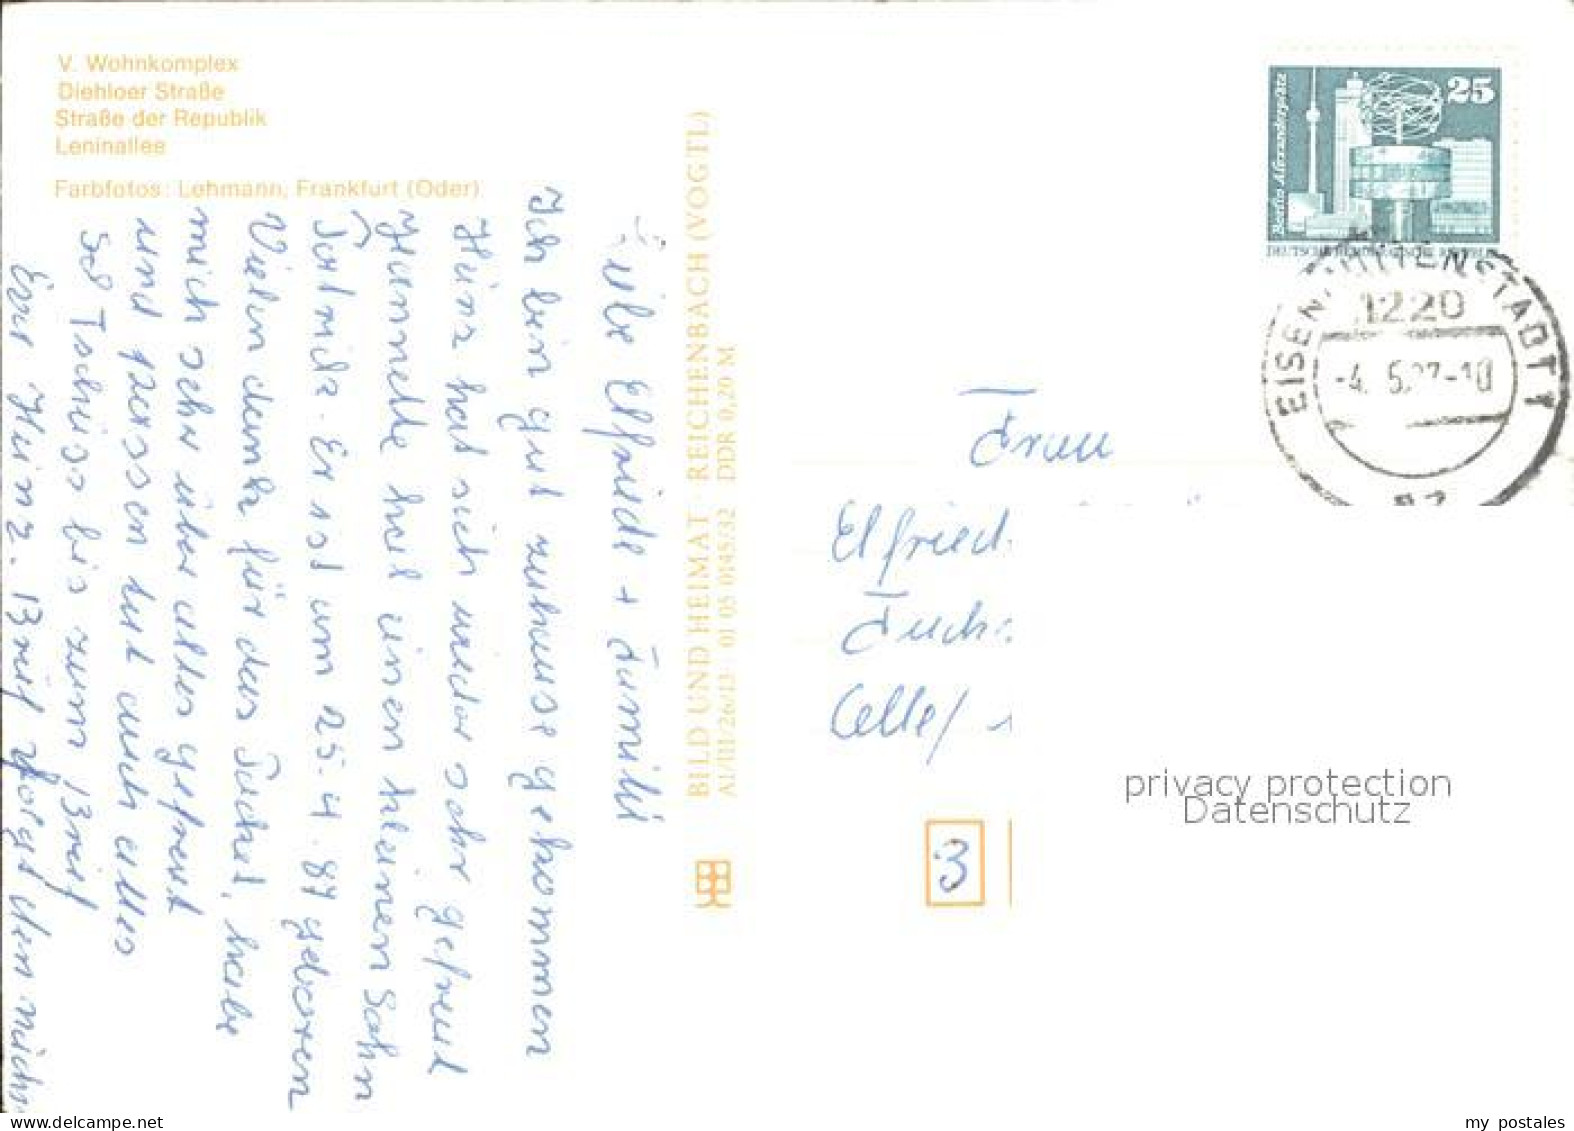 V. Wohnkomplex
Diehloer Straße
Straße der Republik
Leninallee
Farbfotos: Lehmann, Frankfurt (Oder)
Liebe Elfriede + Familie
Ich bin gut zuhause gekommen
Heinz hat sich wieder sehr gefreut
Jeannette hat einen kleinen Sohn
Er ist am 25.4.87 geboren
Vielen dank für das Packet, habe
mich sehr über alles gefreut
und passen tut auch alles
So Tschüss bis zum Brief
Eure Heinz. Brief folgt den näch
BILD UND HEIMAT REICHENBACH (VOGTL)
A1/III/26/13 01 05 0145/32 DDR 0,20 M
25
Berlin Alexanderplatz
DEUTSCHE DEMOKRATISCHE REPUBLIK
EISENHÜTTENSTADT 1
1220
-4. 5.87-10
Frau
Elfried
Fuchs
Celle/
3
privacy protection
Datenschutz
my postales